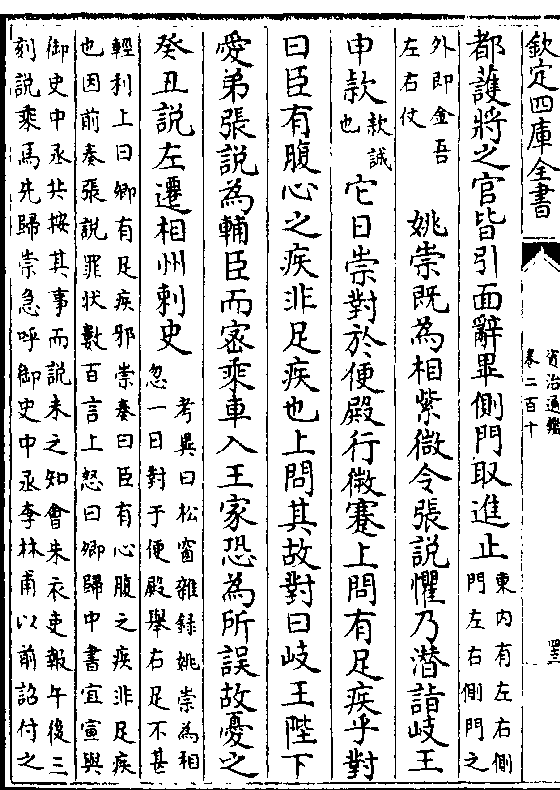 欽定四庫全書
資治通鑑
卷二百十
都護將之官皆引面辭畢側門取進止東内有左右側
門左右側門之
外即金吾
左右仗
姚崇既為相紫微令張說懼乃潛詣岐王
申款款誠
也它日崇對於便殿行微蹇上問有足疾乎對
曰臣有腹心之疾非足疾也上問其故對曰岐王陛下
愛弟張說為輔臣而密乘車入王家恐為所誤故憂之
癸丑說左遷相州刺史考異曰松窗雜録姚崇為相
忽一日對于便殿舉右足不甚
輕利上曰卿有足疾邪崇奏曰臣有心腹之疾非足疾
也因前奏張說罪状數百言上怒曰卿歸中書宜宣與
御史中丞共按其事而說未之知會朱衣吏報午後三
刻說乘馬先歸崇急呼御史中丞李林甫以前詔付之